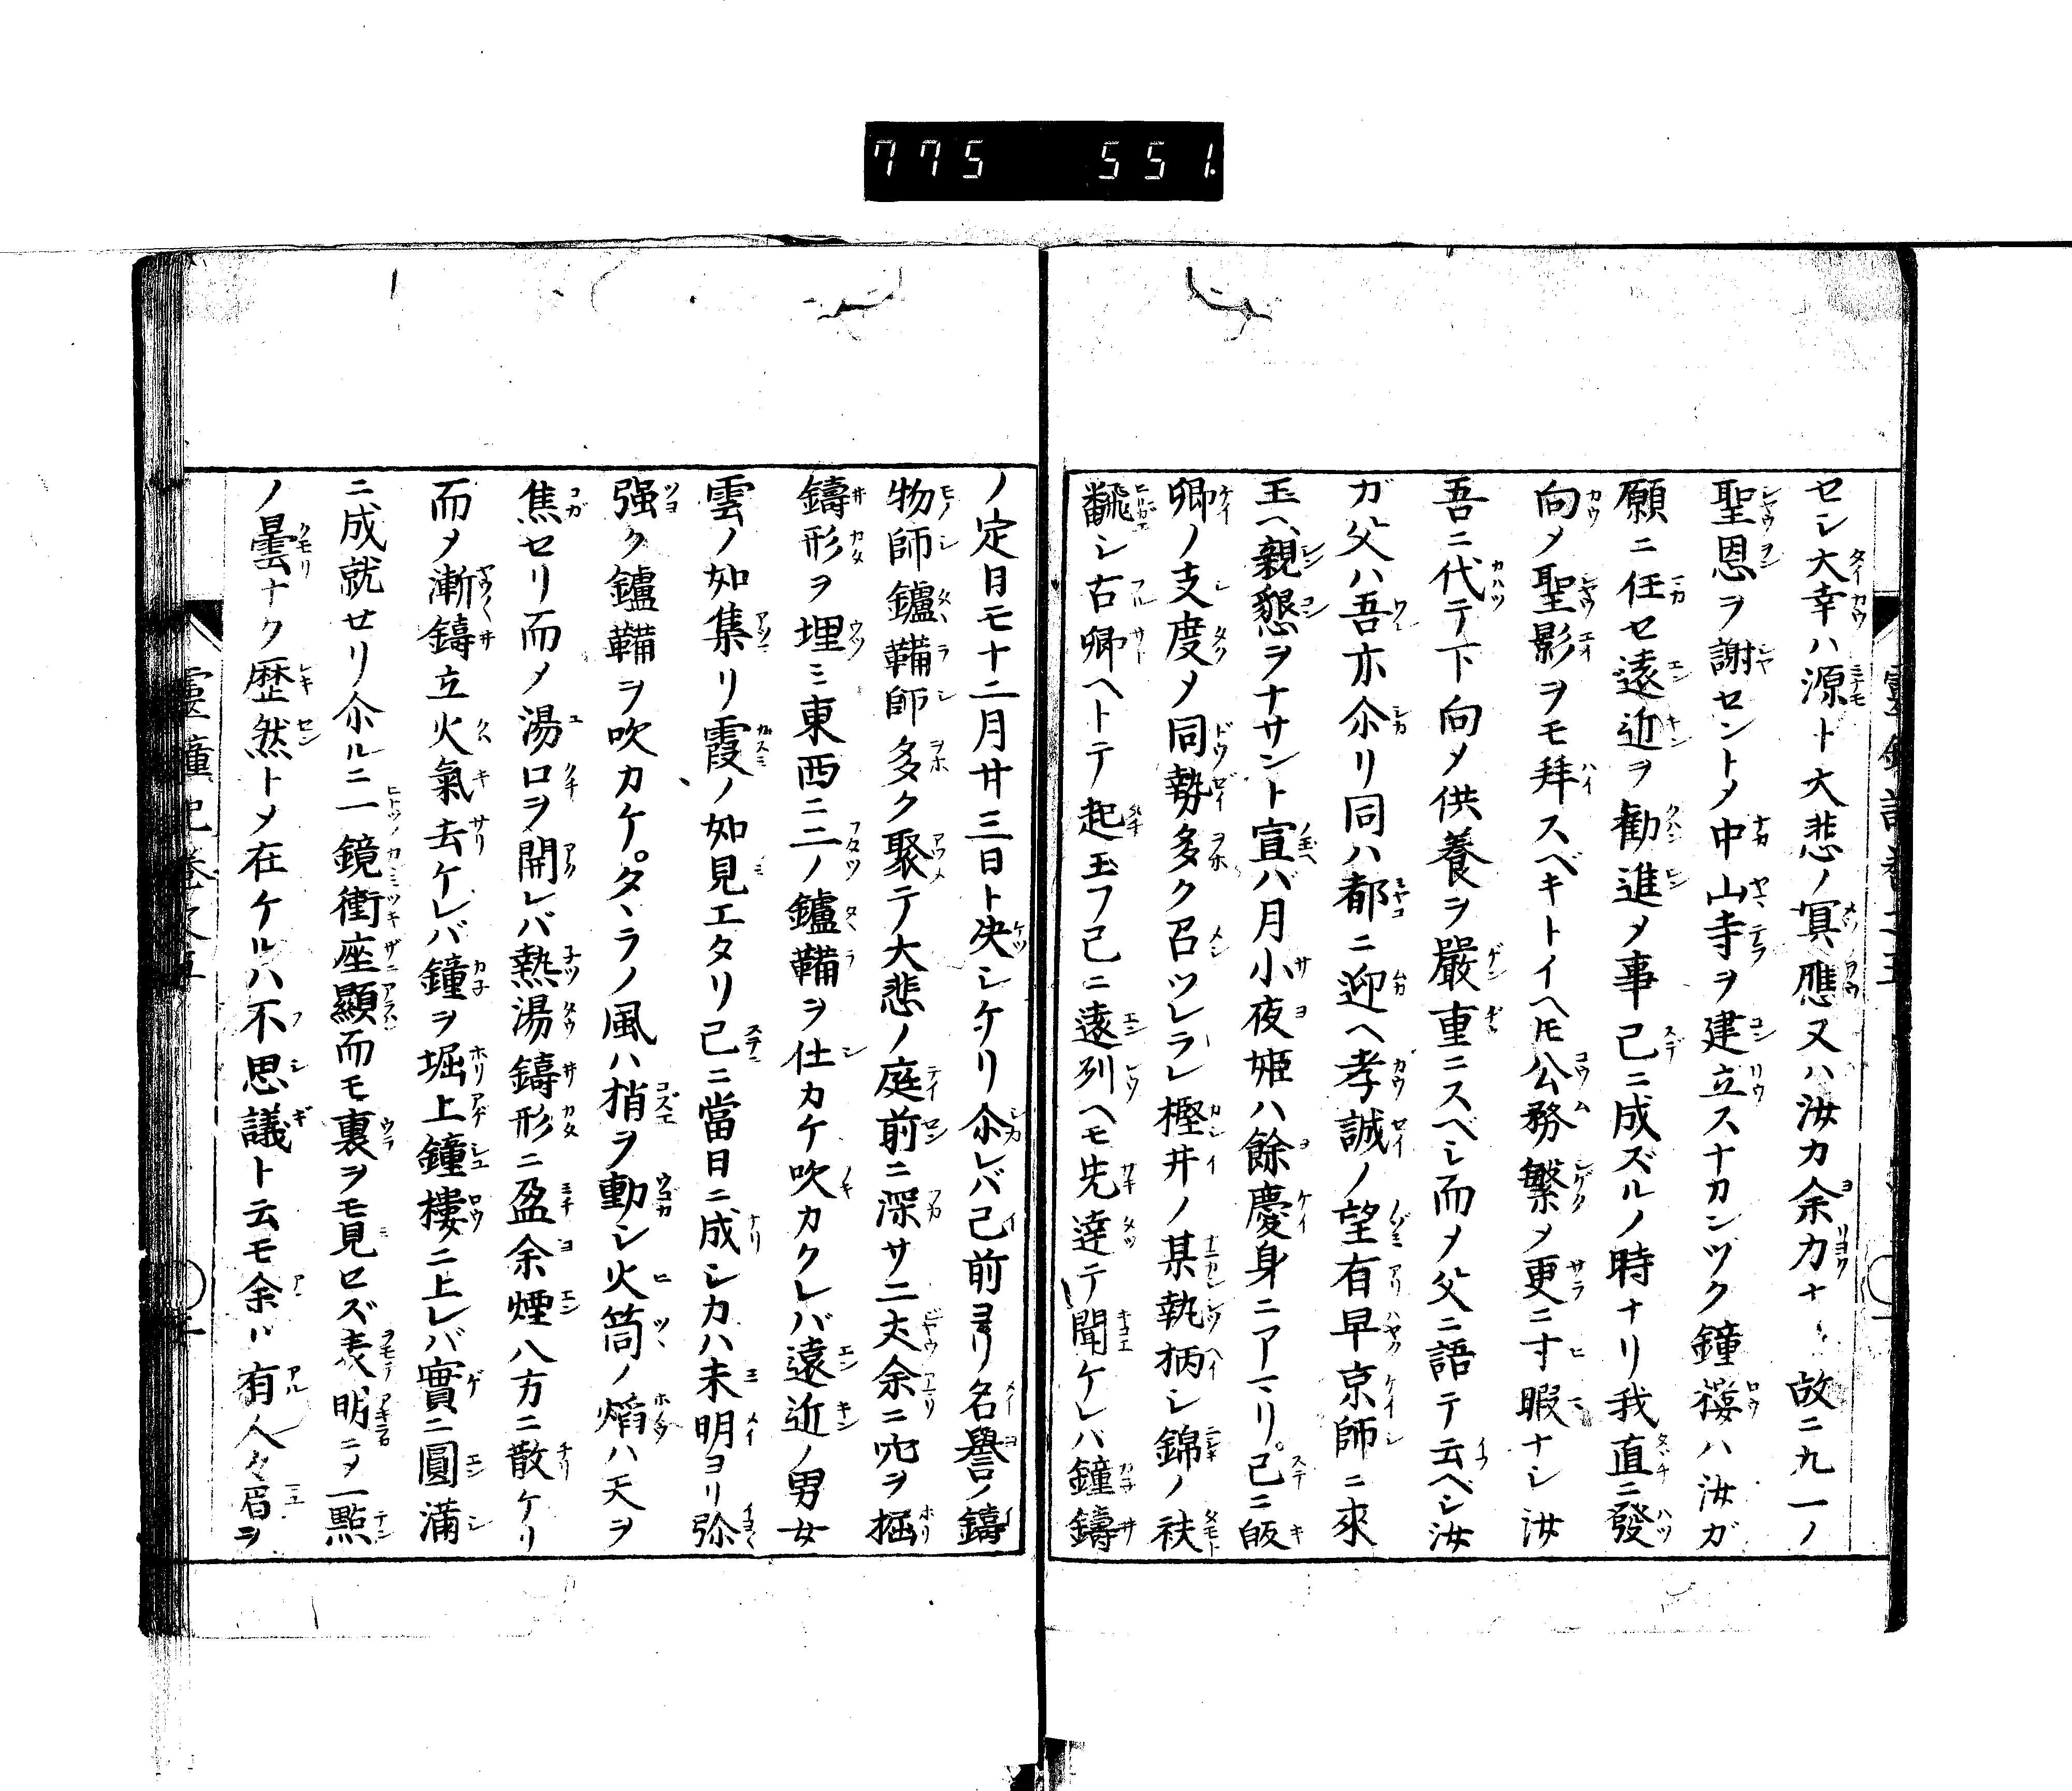 775 551.
セシ大幸ハ源ト大悲ノ冥應又ハ汝カ余力ナ 故ニ九一ノ
聖恩ヲ謝セントメ中山寺ヲ建立スナカンヅク鐘樓ハ汝ガ
願ニ任セ遠近ヲ勧進メ事己ニ成ズルノ時ナリ我直ニ發
向メ聖影ヲモ拜スベキトイヘ𪜈公務繁メ更ニ寸暇ナシ汝
吾ニ代テ下向メ供養ヲ嚴重ニスベシ而メ父ニ語テ云ベシ汝
ガ父ハ吾亦尒リ同ハ都ニ迎ヘ孝誠ノ望有早京師ニ來
玉ヘ親懇ヲナサント宣バ月小夜姫ハ餘慶身ニアマリ己ニ皈
卿ノ支度メ同勢多ク召ツレラレ樫井ノ某執柄シ錦ノ袂
飜シ古卿ヘトテ起玉フ己ニ遠列ヘモ先達テ聞ケレハ鐘鑄
ノ定日モ十二月廿三日ト决シケリ尒レバ己前ヨリ名譽ノ鑄
物師鑪鞴師多ク聚テ大悲ノ庭前ニ深サ二丈余ニ穴ヲ掘
鑄形ヲ埋ミ東西ニ二ノ鑪鞴ヲ仕カケ吹カクレバ遠近ノ男女
雲ノ如集リ霞ノ如見エタリ己ニ當日ニ成シカハ未明ヨリ弥
强ク鑪鞴ヲ吹カケタヽラノ風ハ梢ヲ動シ火筒ノ焔ハ天ヲ
焦セリ而メ湯口ヲ開レバ熱湯鑄形ニ盈余煙八方ニ散ケリ
而メ漸鑄立火氣去ケレバ鐘ヲ堀上鐘樓ニ上レバ實ニ圓滿
ニ成就せリ尒ルニ一鏡衝座顯而モ裏ヲモ見ロズ表明ニメ一點
ノ曇ナク歴然トメ在ケルハ不思議ト云モ余ハ有人々眉ヲ